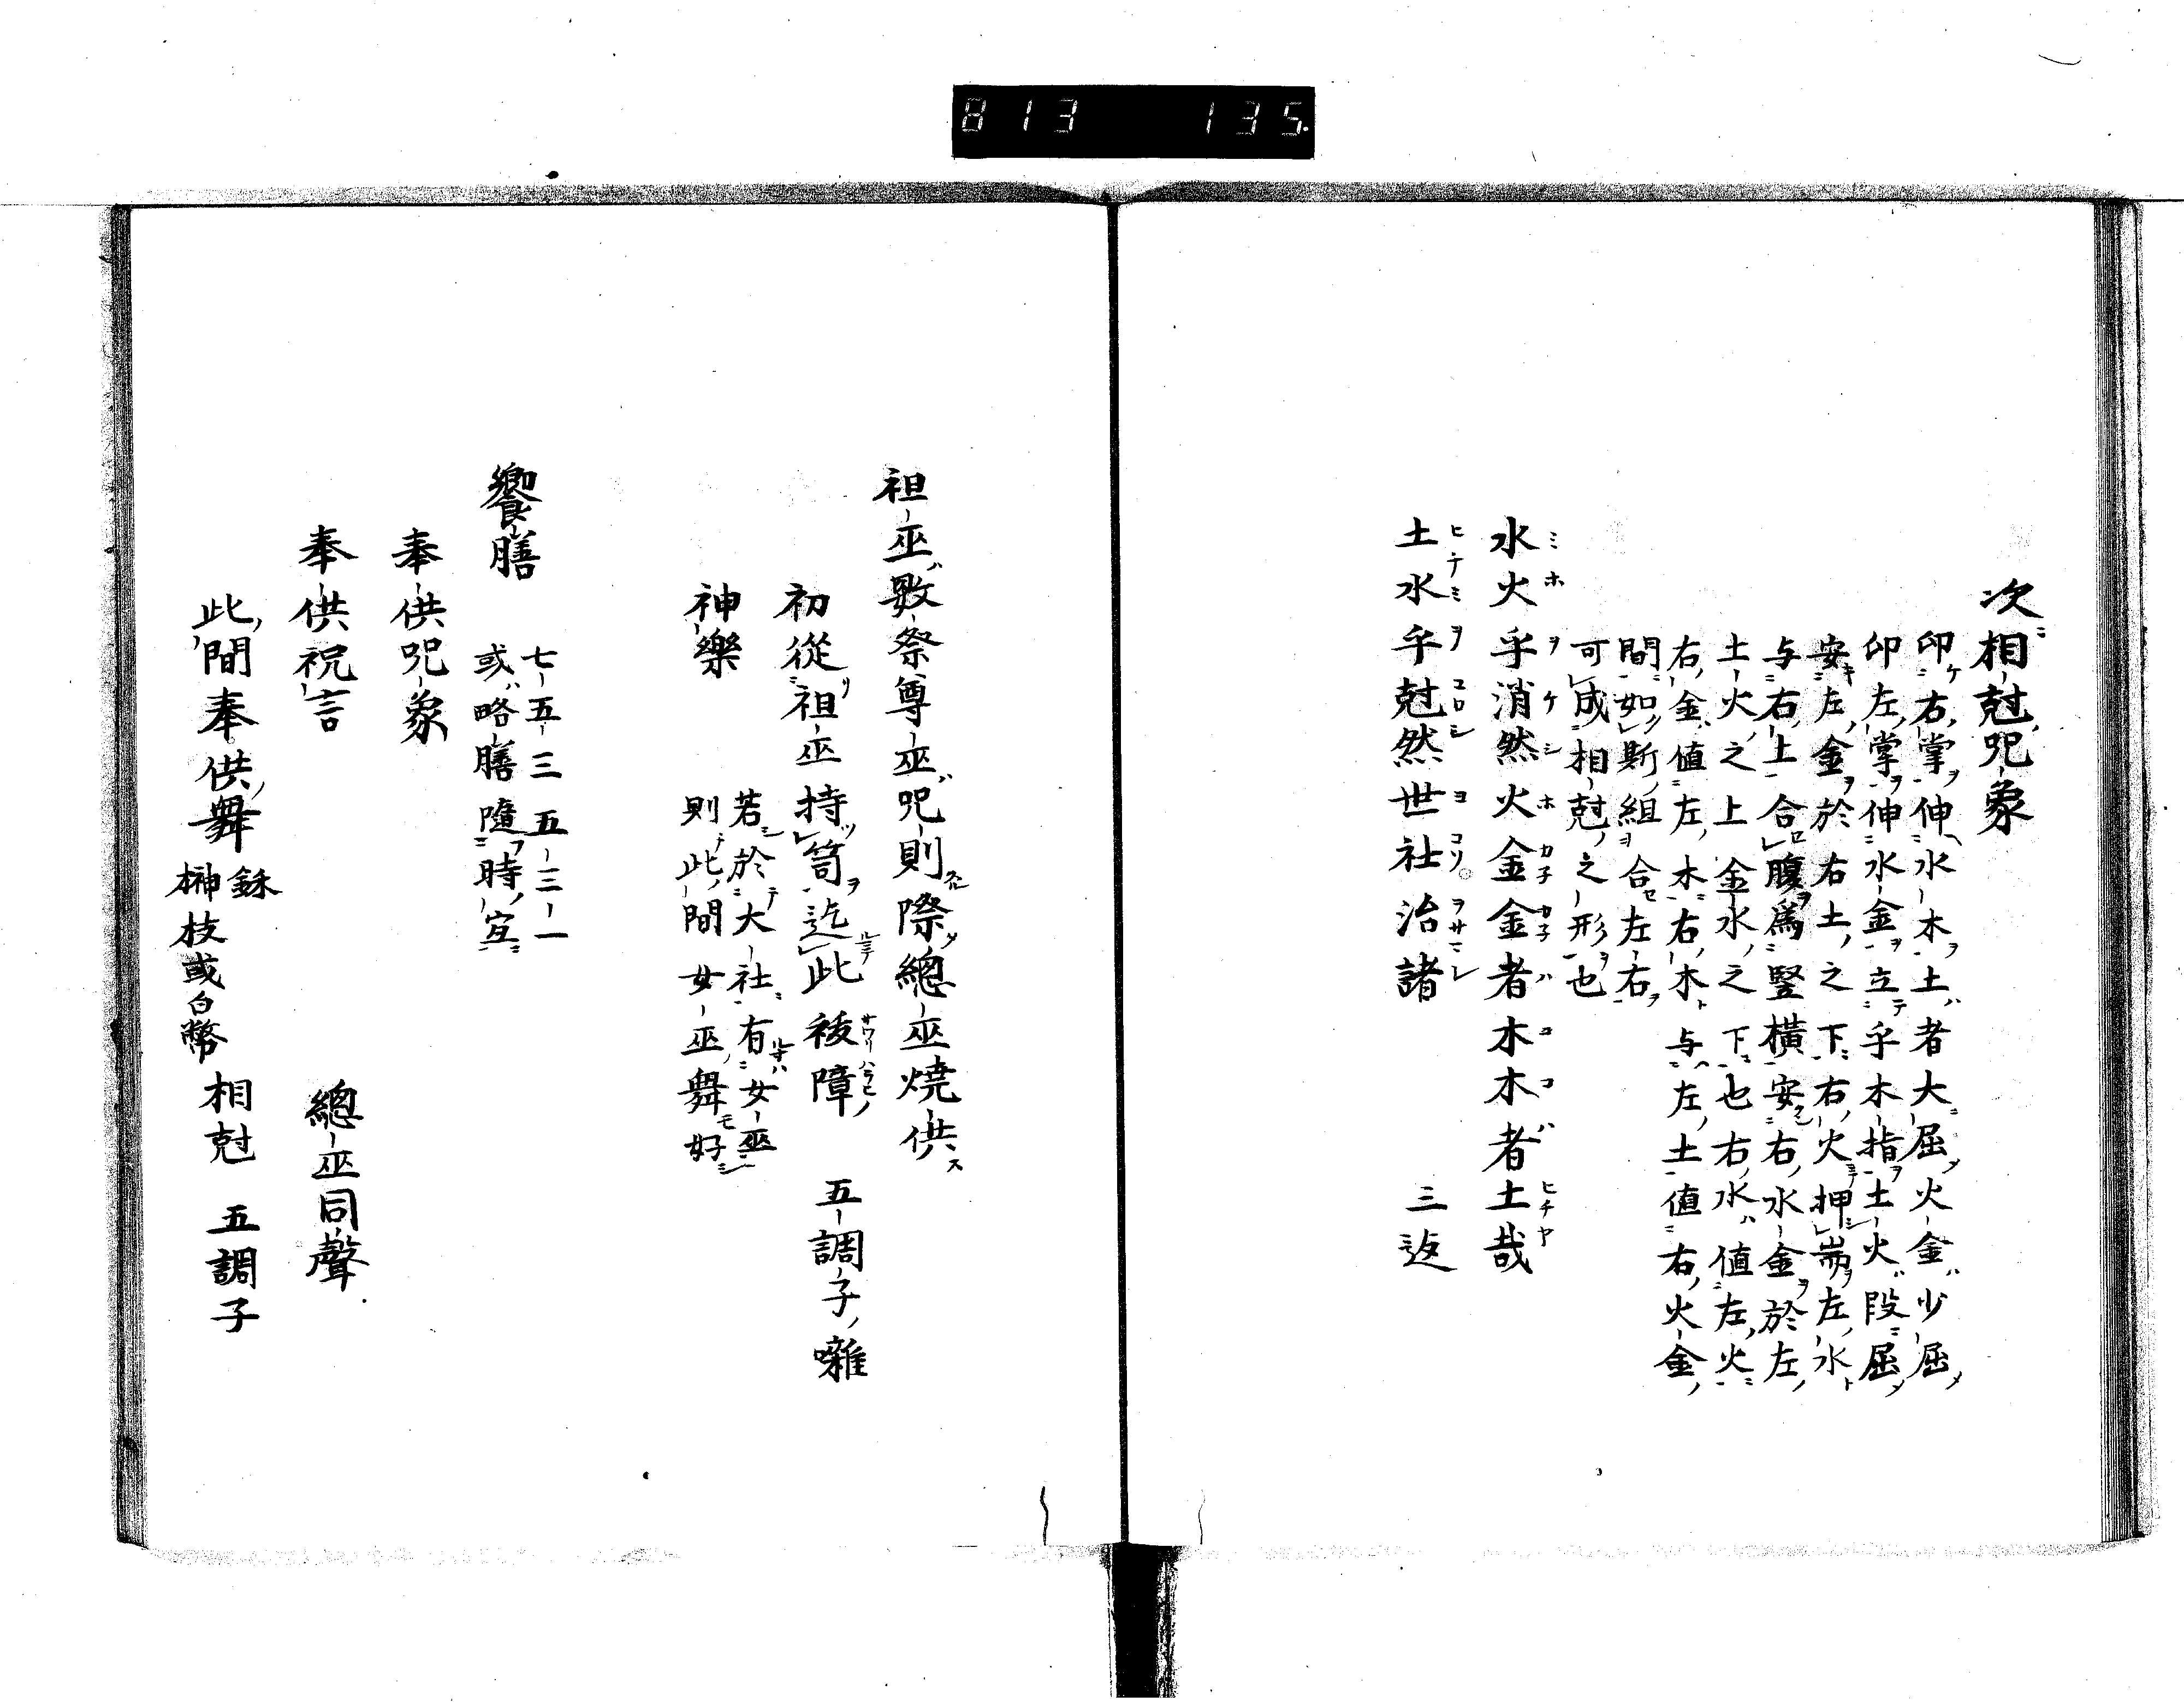 813 135.
次相尅呪象
印右掌伸水木土者大屈火金少屈
印左掌伸水金立乎木指土火段屈
安左金於右土之下右火押耑左水
与右上合腹爲竪横安右水金於左
土火之上金水之下也右水値左火
右金値左木右木与左土値右火金
間如斯組合左右
可成相尅之形也
水火乎消然火金金者木木者土哉
ミホヲケシホカ子カ子ハコハヒチヤ
土水乎尅然世社治諸 三返
ヒチミヲコロシヨコソヲサマレ
祖巫数祭尊巫呪則際總巫焼供
初從祖巫持笥迄此祓障 五調子囃
神樂
若於大社有女巫
則此間女巫舞好
饗膳
七五三 五三一
或略膳隨時宜
奉供呪象
奉供祝言 總巫同聲
此間奉供舞 榊枝或白幣 相尅 五調子